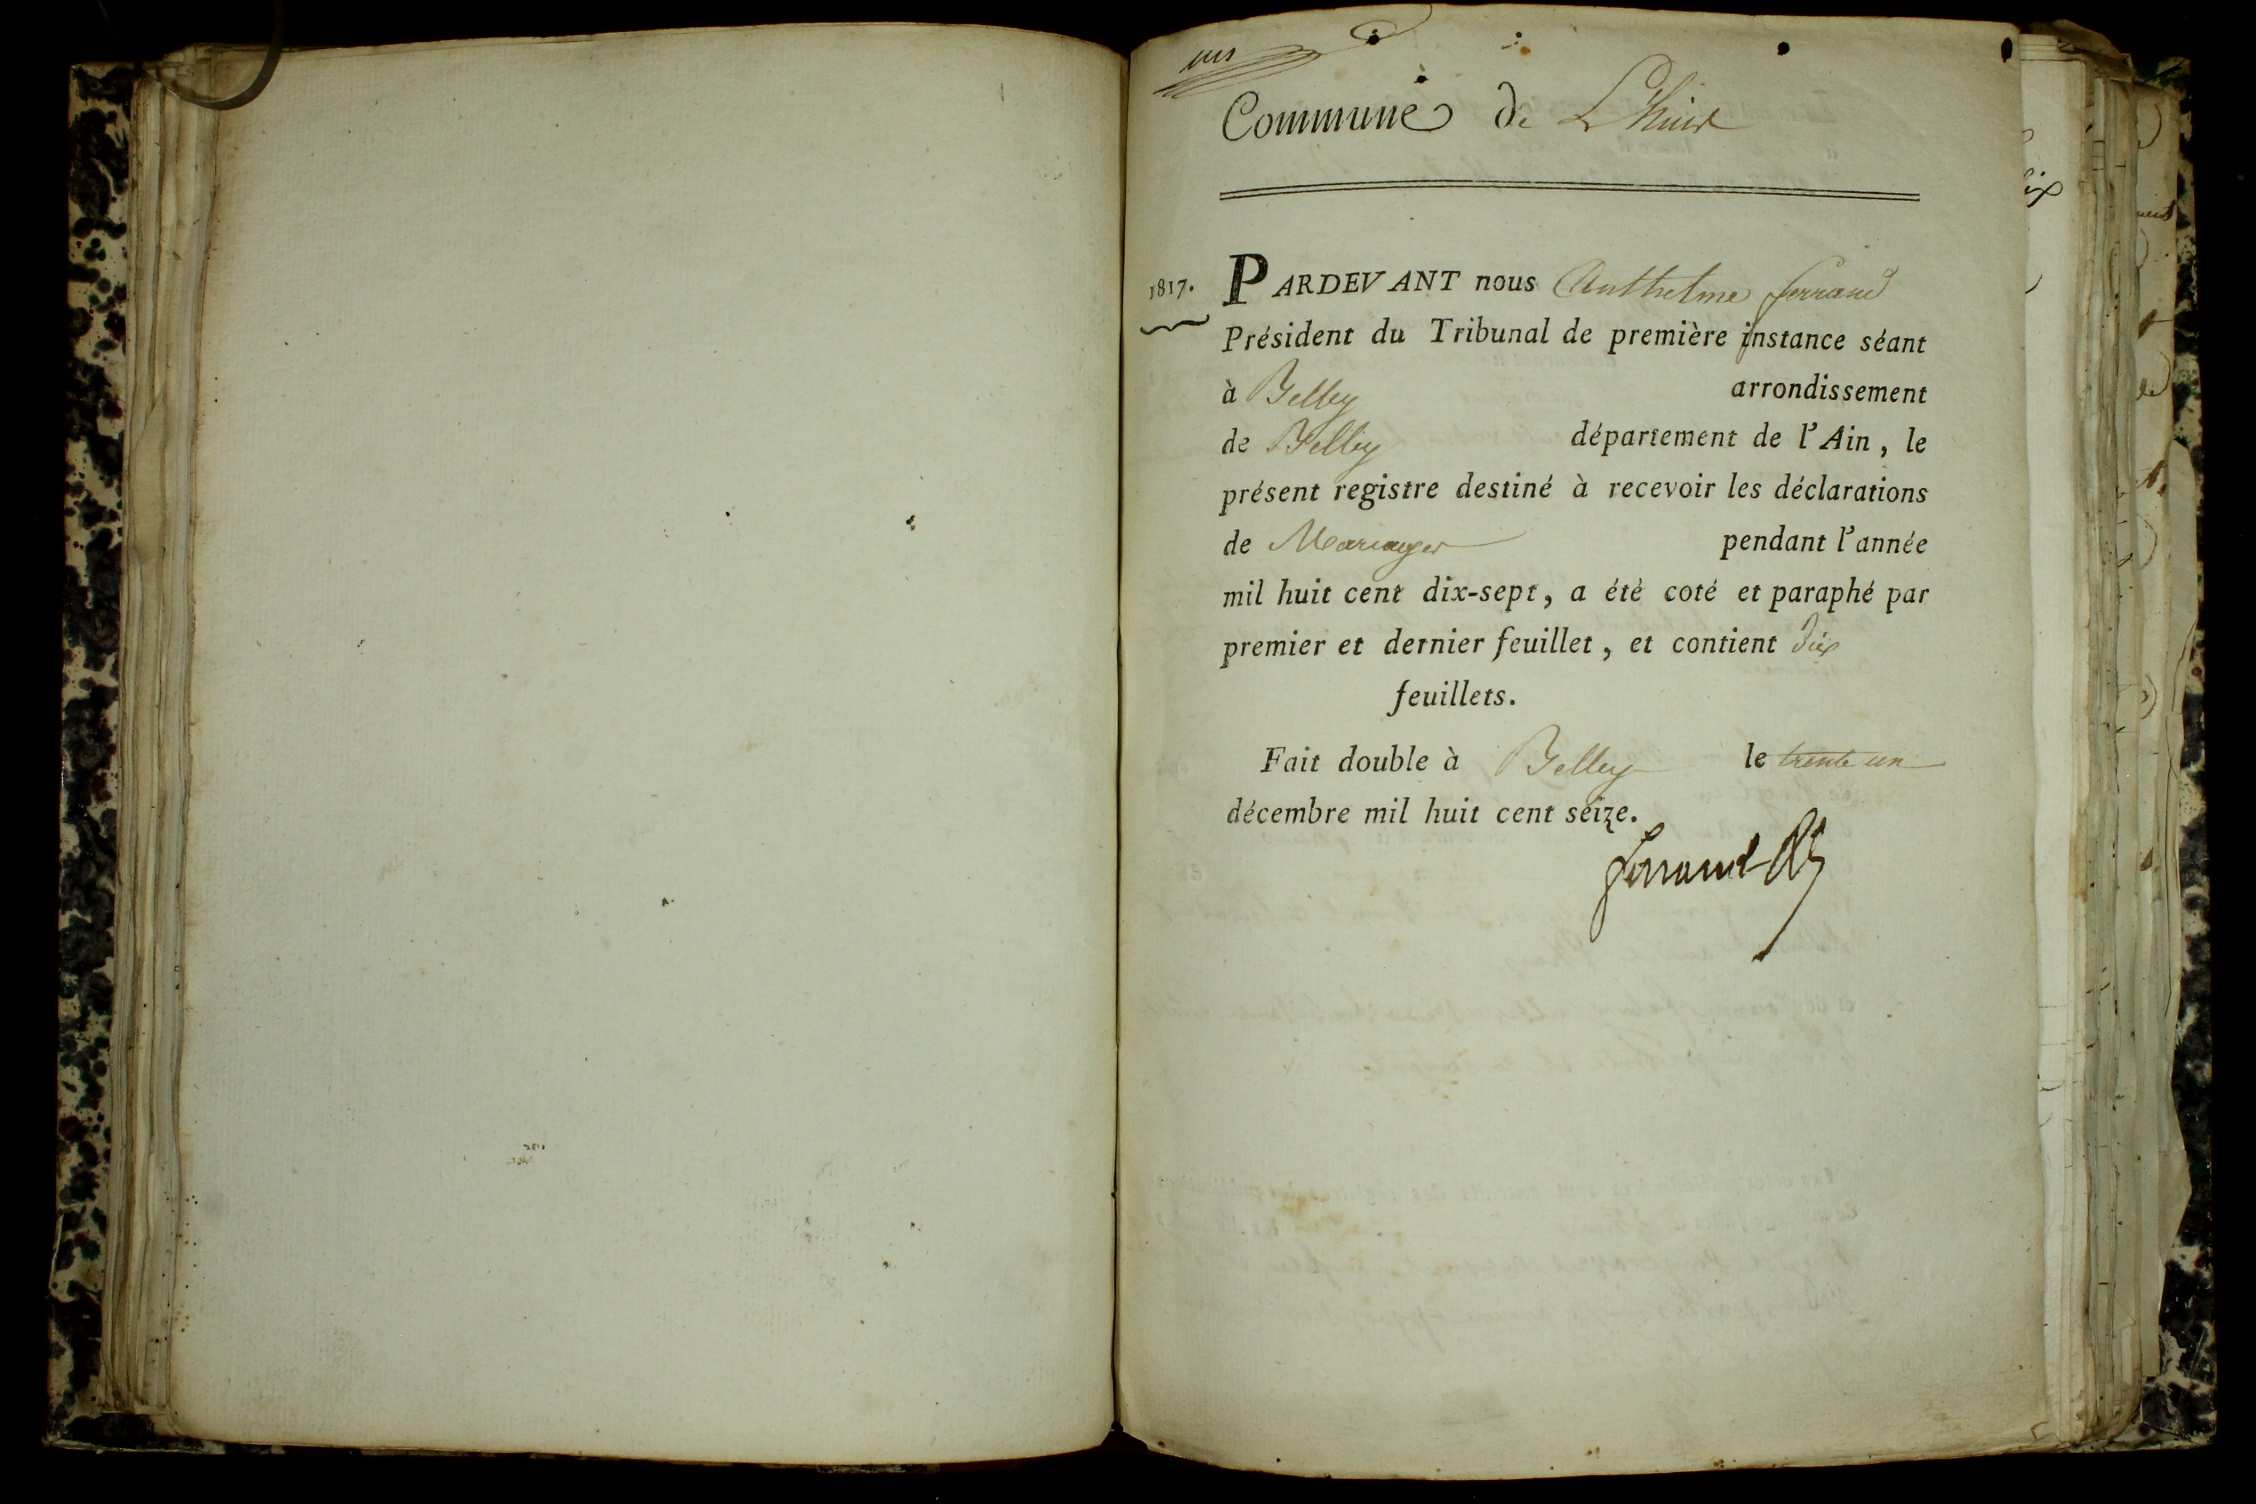 Commune de Lhuis
1817.
PARDEVANT nous Anthelme ferrand
Président du Tribunal de première instance séant
à Belley arrondissement
de Belley département de l'Ain, le
présent registre destiné à recevoir les déclarations
de Mariages pendant l'année
mil huit cent dix-sept, a été coté et paraphé par
premier et dernier feuillet, et contient dix
feuillets.
Fait double à Belley le trente un
décembre mil huit cent seize.
ferrand